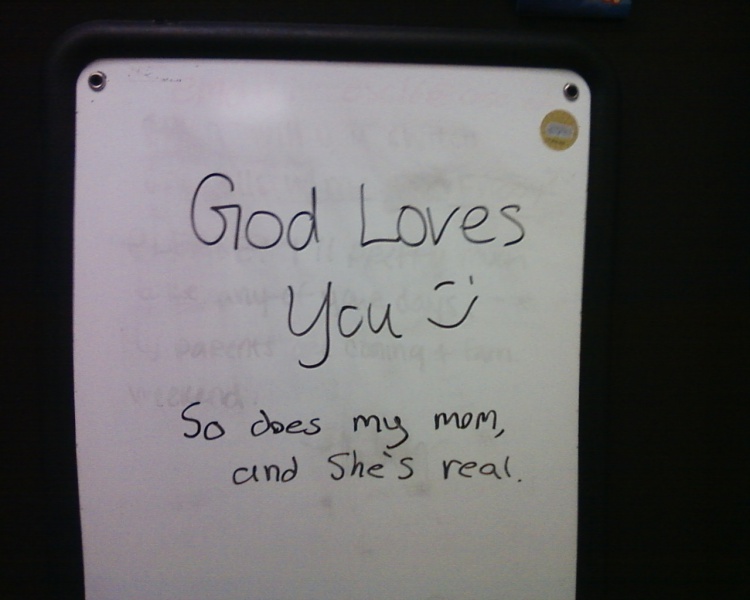 God Loves
You :)
So does my mom,
and She's real.